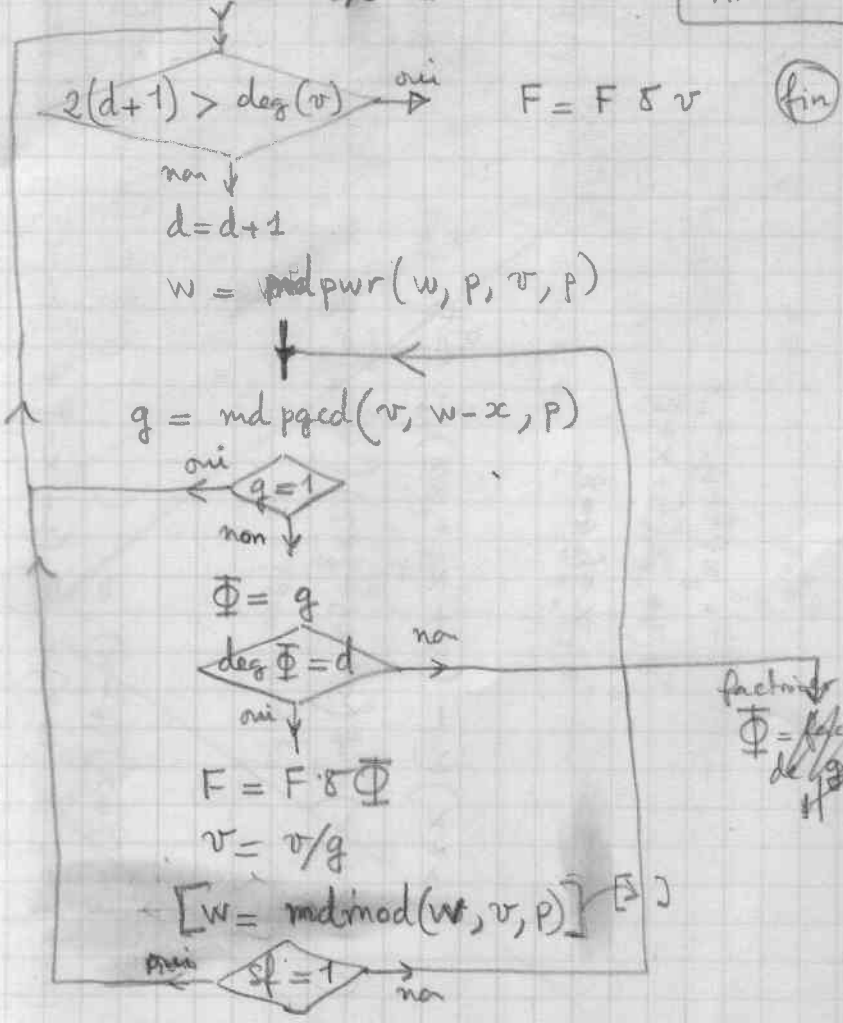 2(d+1) > deg(v) oui F = F 8 v fin
non
d=d+1
w = mdpwr(w, p, v, p)
g = mdpgcd(v, w-x, p)
oui g=1
non
Φ = g
deg Φ = d non
oui
Φ =
de g
F = F 8 Φ
v = v/g
[w = mdmod(w, v, p)]
oui sf = 1 non